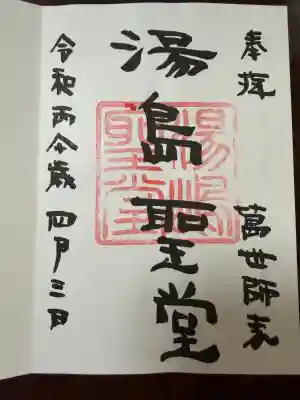 奉拝 萬世師表
湯島聖堂
令和丙午歳 四月三日